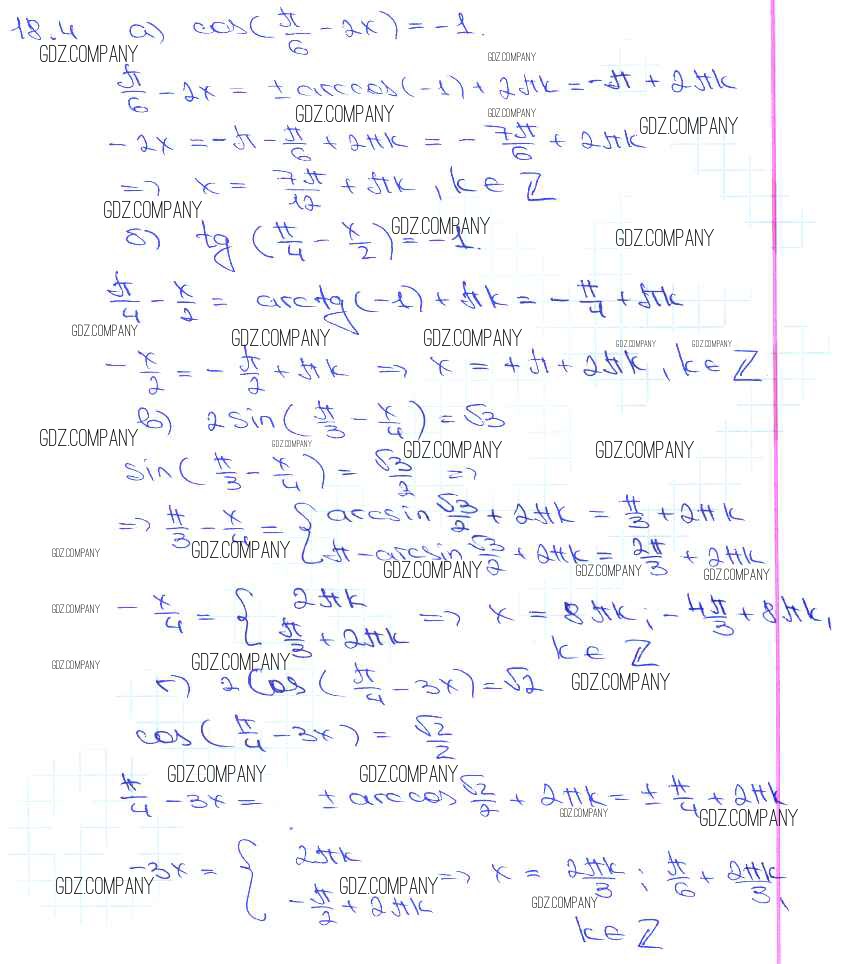 18.4 а) cos(π/6 − 2x) = −1.
GDZ.COMPANY GDZ.COMPANY
π/6 − 2x = ± arccos(−1) + 2πk = −π + 2πk
GDZ.COMPANY GDZ.COMPANY GDZ.COMPANY
− 2x = −π − π/6 + 2πk = − 7π/6 + 2πk
=> x = 7π/12 + πk, k ∈ Z
GDZ.COMPANY GDZ.COMPANY GDZ.COMPANY
б) tg(π/4 − x/2) = −1.
π/4 − x/2 = arctg(−1) + πk = − π/4 + πk
GDZ.COMPANY GDZ.COMPANY GDZ.COMPANY GDZ.COMPANY GDZ.COMPANY
− x/2 = − π/2 + πk => x = +π + 2πk, k ∈ Z
в) 2 sin(π/3 − x/4) = √3
GDZ.COMPANY GDZ.COMPANY GDZ.COMPANY GDZ.COMPANY
sin(π/3 − x/4) = √3/2 =>
=> π/3 − x/4 = { arcsin √3/2 + 2πk = π/3 + 2πk
π − arcsin √3/2 + 2πk = 2π/3 + 2πk
GDZ.COMPANY GDZ.COMPANY GDZ.COMPANY GDZ.COMPANY GDZ.COMPANY
− x/4 = { 2πk
π/3 + 2πk => x = 8πk; − 4π/3 + 8πk,
k ∈ Z
GDZ.COMPANY GDZ.COMPANY GDZ.COMPANY GDZ.COMPANY
г) 2 cos(π/4 − 3x) = √2
cos(π/4 − 3x) = √2/2
GDZ.COMPANY GDZ.COMPANY
π/4 − 3x = ± arccos √2/2 + 2πk = ± π/4 + 2πk
GDZ.COMPANY GDZ.COMPANY
−3x = { 2πk
− π/2 + 2πk => x = 2πk/3; π/6 + 2πk/3,
GDZ.COMPANY GDZ.COMPANY GDZ.COMPANY
k ∈ Z